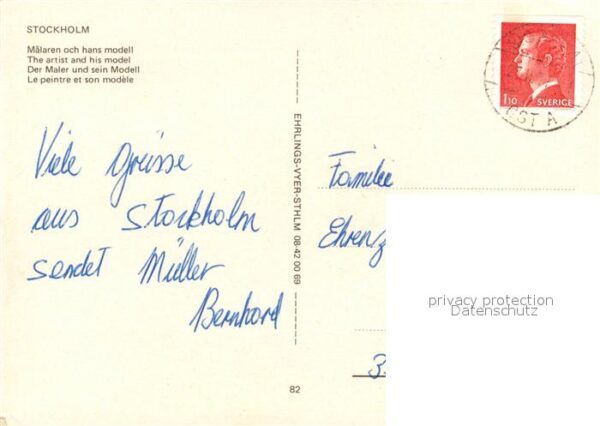 STOCKHOLM
Målaren och hans modell
The artist and his model
Der Maler und sein Modell
Le peintre et son modèle
Viele Grüsse
aus Stockholm
sendet Müller
Bernhard
EHRLINGS-VYER-STHLM 08-42 00 69
82
1.10 SVERIGE
ÖST A
Familie
Ehrenz
3
privacy protection
Datenschutz